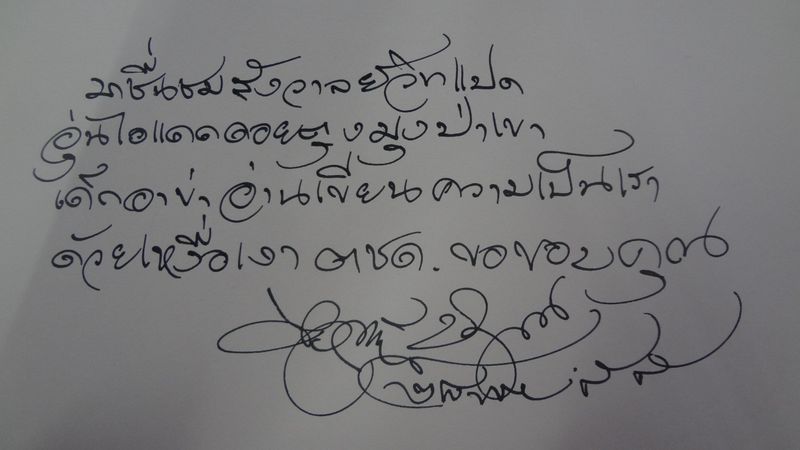 มาชื่นชมสังวาลย์วิทแปด
อุ่นไอแดดดอยสูงมุ่งป่าเขา
เด็กอาข่า อ่านเขียน ความเป็นเรา
ด้วยเหงื่อเงา ตชด. ขอขอบคุณ